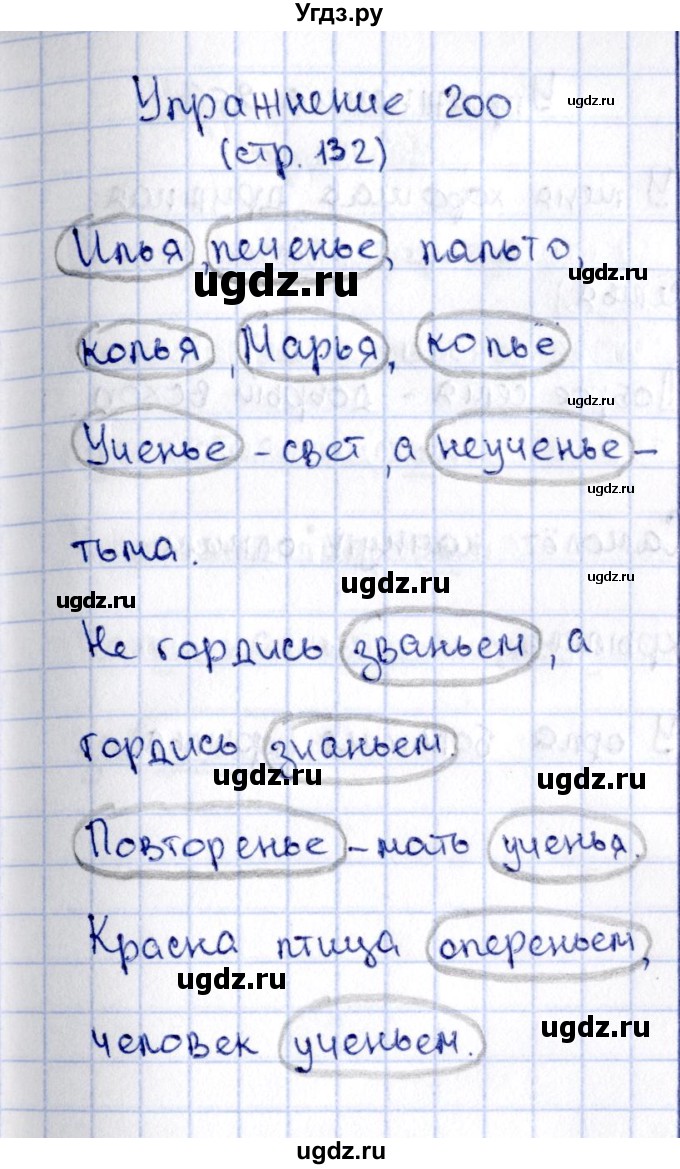 Угдз.ру
Упражнение 200
ugdz.ru
(стр. 132)
Илья, печенье, пальто,
ugdz.ru
ugdz.ru
колья, Марья, копьё
ugdz.ru
Ученье - свет, а неученье -
ugdz.ru
тьма.
ugdz.ru
ugdz.ru
ugdz.ru
Не гордись званьем, а
гордись знаньем.
ugdz.ru
ugdz.ru
Повторенье - мать ученья.
Красна птица опереньем,
ugdz.ru
человек ученьем.
ugdz.ru
ugdz.ru